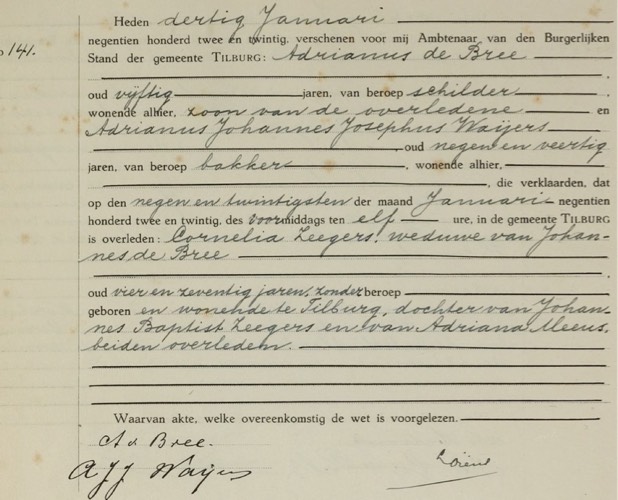 Heden dertig Januari
negentien honderd twee en twintig, verschenen voor mij Ambtenaar van den Burgerlijken
141.
Stand der gemeente TILBURG: Adrianus de Bree
,
oud vijftig jaren, van beroep schilder,
wonende alhier, zoon van de overledene en
Adrianus Johannes Josephus Waijers
oud negen en veertig
jaren, van beroep bakker, wonende alhier,
, die verklaarden, dat
op den negen en twintigsten der maand Januari negentien
honderd twee en twintig, des voormiddags ten elf ure, in de gemeente TILBURG
is overleden: Cornelia Zeegers, weduwe van Johan-
nes de Bree
,
oud vier en zeventig jaren, zonder beroep
geboren en wonende te Tilburg, dochter van Johan-
nes Baptist Zeegers en van Adriana Meeus,
beiden overleden.
Waarvan akte, welke overeenkomstig de wet is voorgelezen.
A d Bree.
A J J Waijers